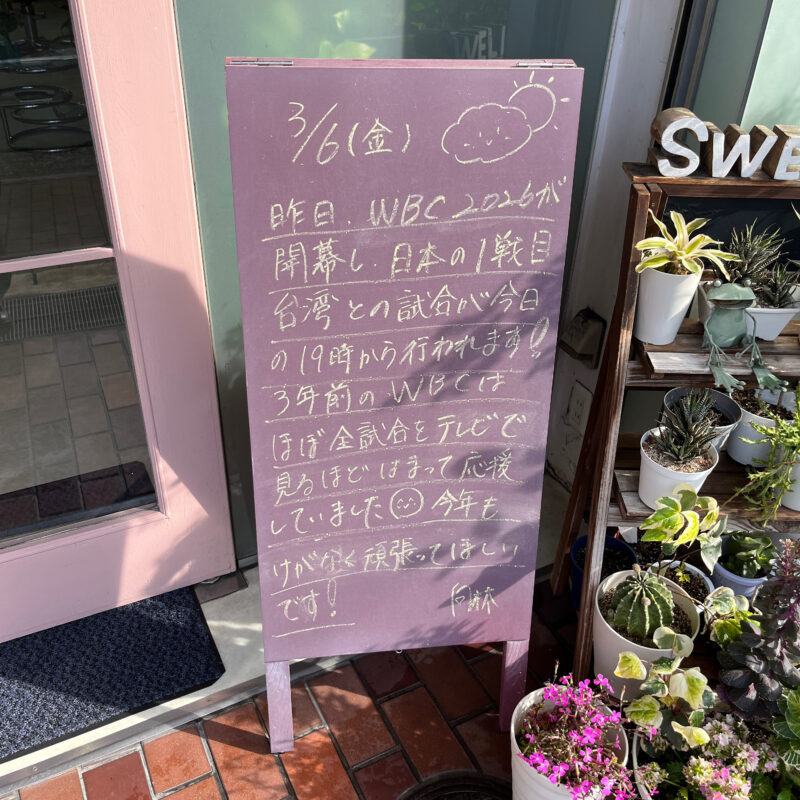 3/6(金)
昨日、WBC 2026が
開幕し、日本の1戦目
台湾との試合が今日
の19時から行われます!
3年前のWBCは
ほぼ全試合をテレビで
見るほどはまって応援
していました 今年も
けがなく頑張ってほしい
です!
WEL
SWE